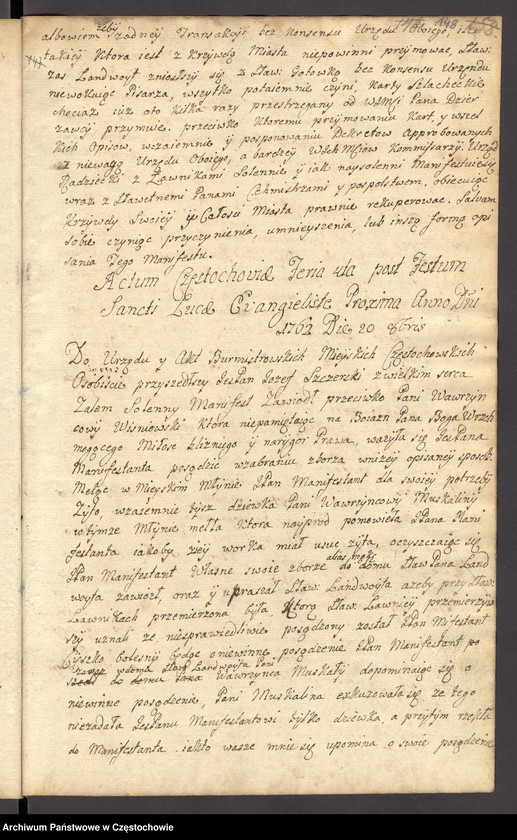 żeby 148. 158.
albowiem Szadney Transakcyi bez konsensu Urzędu Oboiego, iako
takiey Ktora iest z krzywdą Miasta niepowinni przyimować, Sław:
zas Landwoyt zniosszy się z Sław: bez konsensu Urzyndu
niewokuiąc Pisarza, wszytko potaiemnie czyni, karty Szlacheckie
chociaż iuż oto kilka razy przestrzegany od WJMsci Pana Dzier
zawcy przymuie. przeciwko ktoremu przyimowaniu kart, y wszel
kich Opisow, wzaiemnie y posponowaniu Dekretow Approbowanych
z niewagą Urzędu Oboiego, a bardziey Kommissarzy. Urząd
Radziecki z Ławnikami Solennie y iak naysolenni Manifestuie się
wraz z Sławetnemi Panami Cekmistrzami y pospolstwem. obiecuiąc
Krzywdy Swoiey y Całosci Miasta prawnie rekuperować. Salvam
sobie czyniąc przyczynienia, umnieyszenia, lub inszą formą opi
sania Tego Manifestu.
Actum Częstochoviæ Feria 4ta post Festum
Sancti Lucæ Evangieliste Proxima Anno Dni
1762 Die 20 8bris
Do Urzędu y Akt Burmistrowskich Mieyskich Częstochowskich
Osobiscie przyszedłszy JegPan Jozef Szczerski z wielkim serca
Zalem Solenny Manifest Zawiodł przeciwko Pani Wawrzyn
cowy Wisniewski ktora niepamiętaiąc na Boiazn Pana Boga Wszech
mogącego Miłosc blizniego y narygor Prawa, wazyła się JegPana
Manyfestanta posądzic wzabraniu zborza wnizey opisaney sposob
Mełąc w Mieyskim Młynie JPan Manifestant dla swoiey potrzeby
Zyto, wzaiemnie tysz dziewka Pani Wawrzyncowy Muskaliny
wtymze Młynie mełła ktora nayprod pomowieła JPana Mani
festanta iakoby ziey worka miał usuc zyta, oczyszczaiąc się
JPan Manifestant Własne swoie zborze do domu Sław Pana Land
woyta zawiozł, oraz y upraszał Sław: Landwoyta azeby przy Sław:
Ławnikach przemierzona była Ktorą Sław: Ławnicy przemierzyw
szy uznali ze niesprawiedliwie posądzony został JPan Mifestant
Cięszko bolesny będąc o niewinne posądzenie JPan Manifestant po
zaraz zdomu Sław Landwoyta Pani
szedł do domu Pana Wawrzynca Muskały dopominaiąc się o
niewinne posądzenie, Pani Muskalina exkuzowała się ze tego
niezadała JegPanu Manyfestantowi tylko dziewka, a przytym rzekła
do Manifestanta iakto wasze mnie się upomina o swoie posądzenie
Archiwum Państwowe w Częstochowie